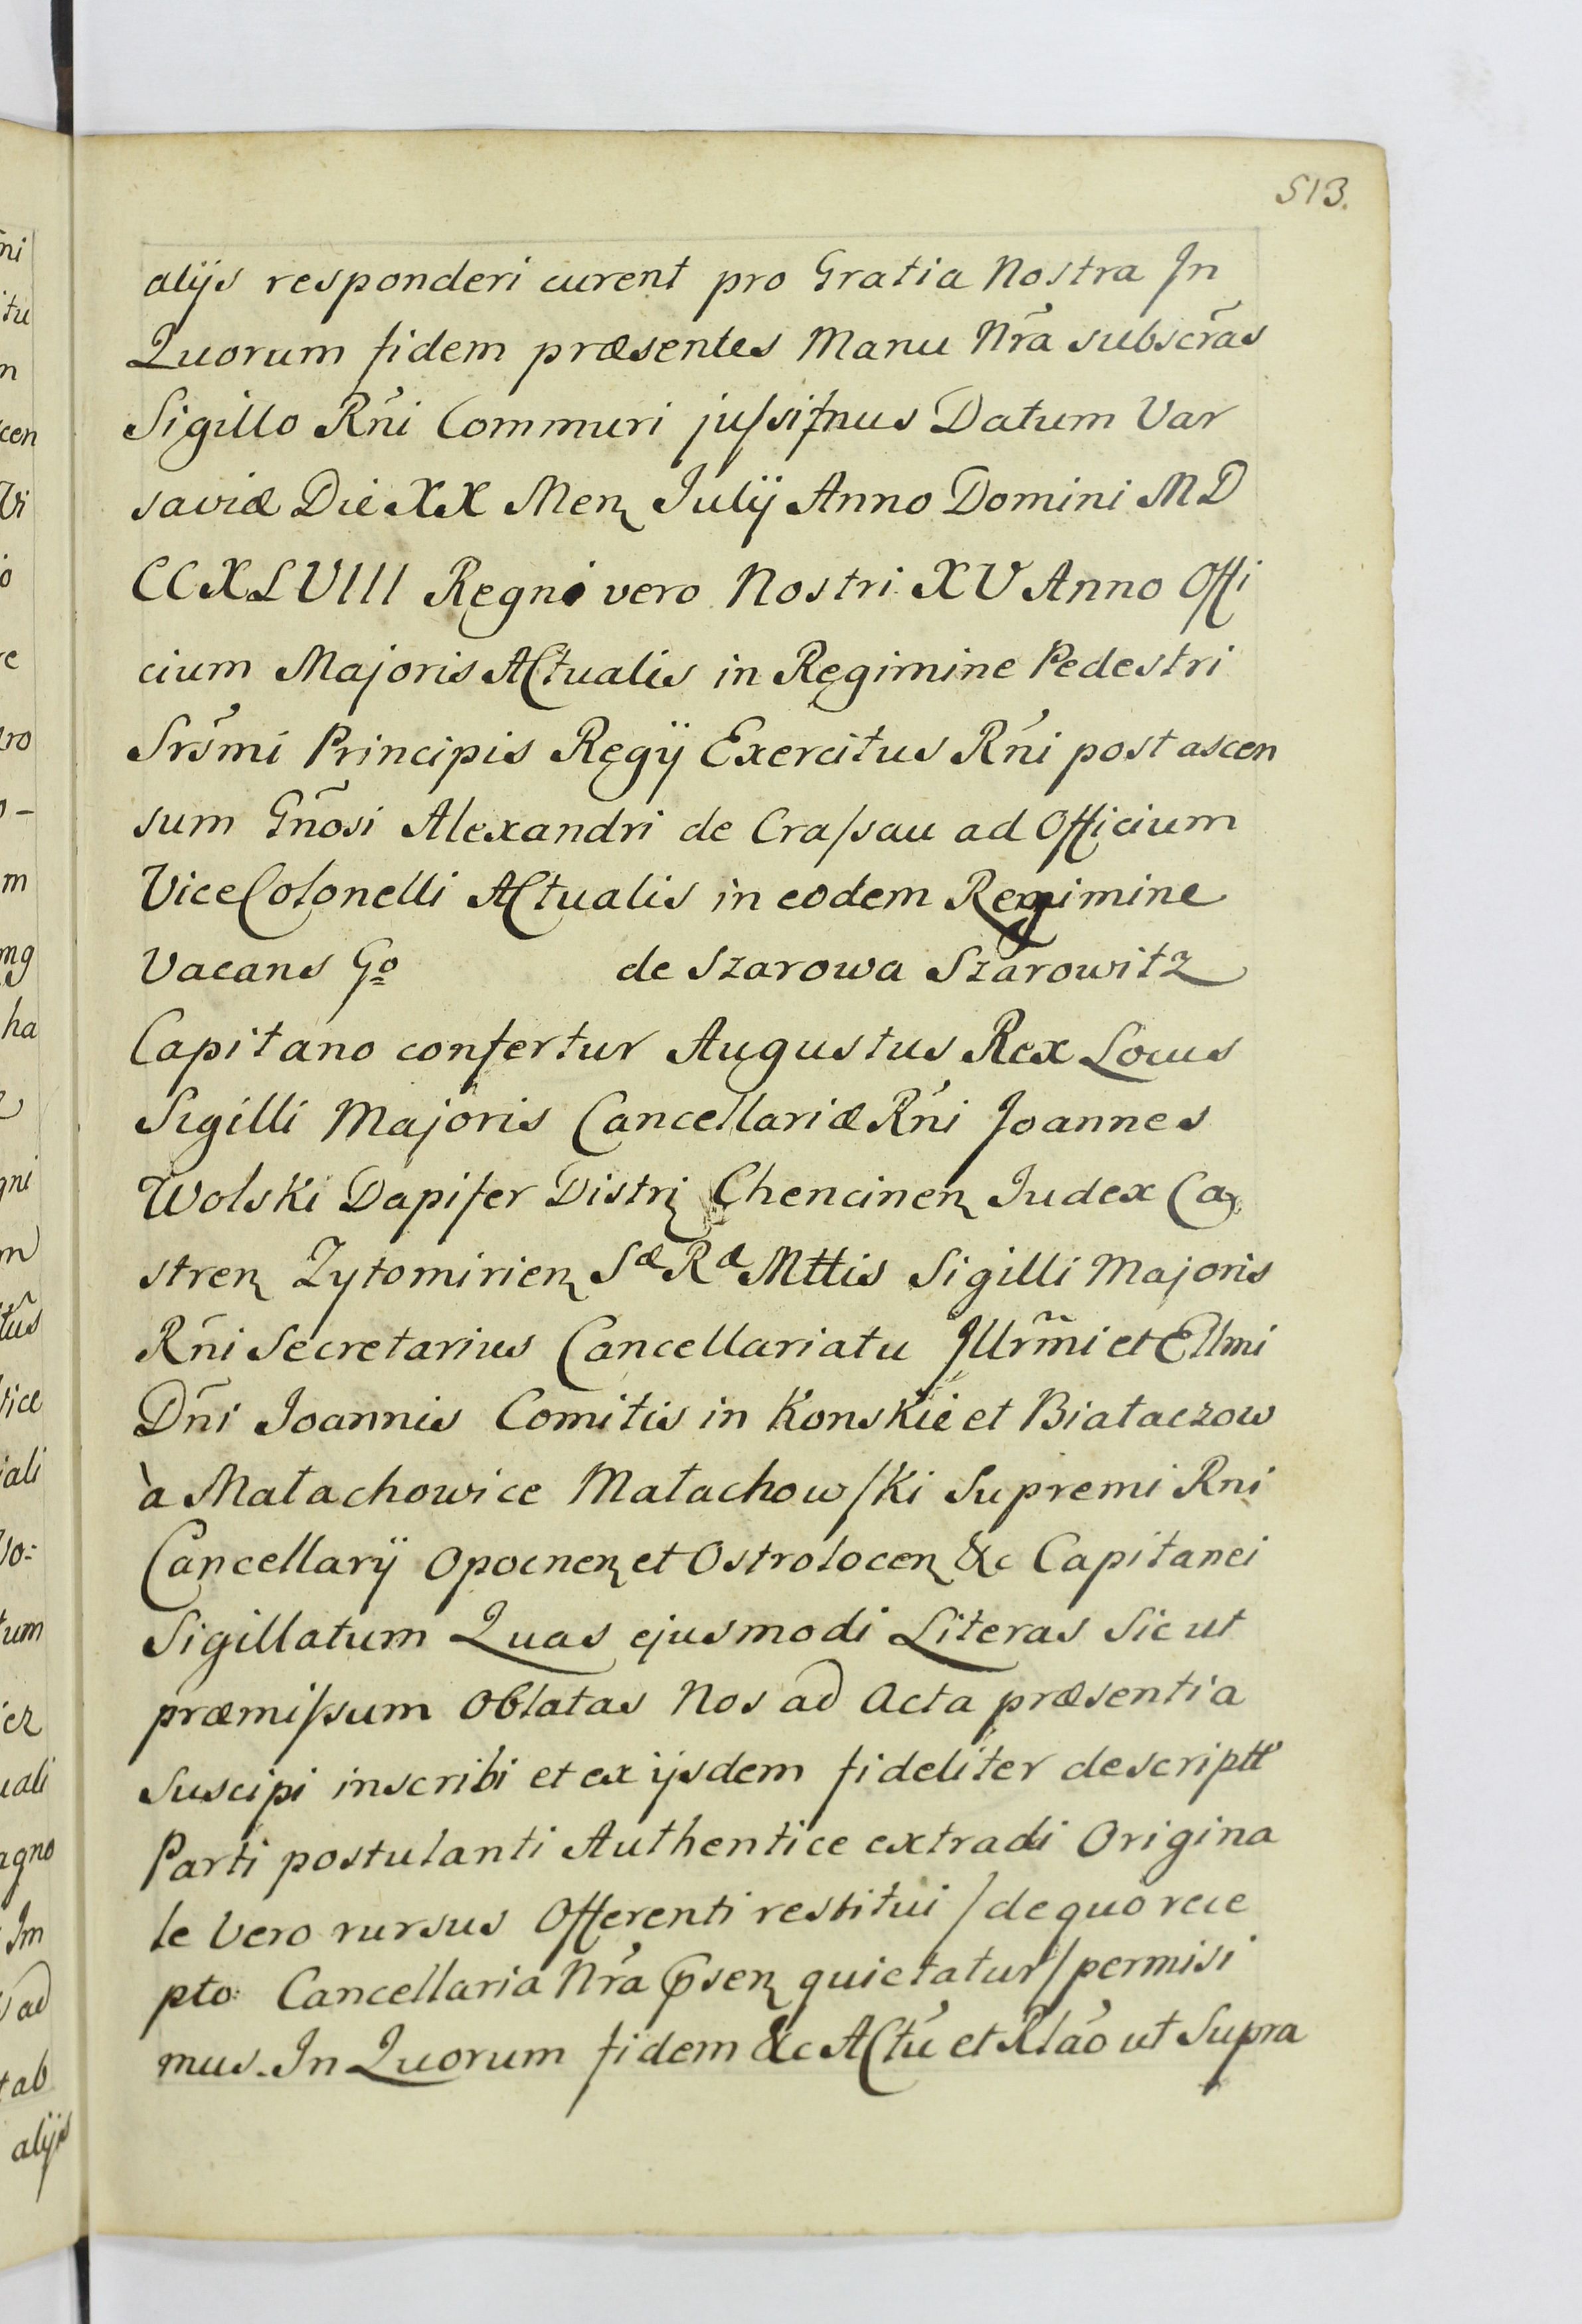 513.
alijs responderi curent pro Gratia Nostra In
Quorum fidem præsentes Manu Nr̃a subscr̃as
Sigillo Rñi Communri jussimus Datum Var
saviæ Die XX Menꝫ Julij Anno Domini MD
CCXLVIII Regni vero Nostri XV Anno Offi
cium Majoris Actualis in Regimine Pedestri
Srs̃mi Principis Regij Exercitus Rñi post ascen
sum Gñosi Alexandri de Crassau ad Officium
ViceColonelli Actualis in eodem Regimine
Vacans Go de Szarowa Szarowitz
Capitano confertur Augustus Rex Locus
Sigilli Majoris Cancellariæ Rñi Joannes
Wolski Dapifer Distrꝫ Chencinenꝫ Judex Ca
strenꝫ Zytomirienꝫ Sæ Ræ Mttis Sigilli Majoris
Rñi Secretarius Cancellariatu Illrm̃i et Ellmi
Dñi Joannis Comitis in Konskie et Biataczow
à Matachowice Matachowski Supremi Rni
Cancellarij Opocnenꝫ et Ostrolocenꝫ &c Capitanei
Sigillatum Quas ejusmodi Literas Sic ut
præmissum Oblatas Nos ad Acta præsentia
Suscipi inscribi et ex ijsdem fideliter descriptt
Parti postulanti Authentice extradi Origina
le Vero rursus Offerenti restitui / de quo rece
pto: Cancellaria Nr̃a p̃senꝫ quietatur / permisi
mus. In Quorum fidem &c Actũ et Rlãõ ut Supra
ni
itu
n
cen
Vi
o
re
tro
o-
m
mg
ha
gni
m
tus
Vice
iali
Vo:
tum
icz
uali
agno
Im
ad
tab
alijs